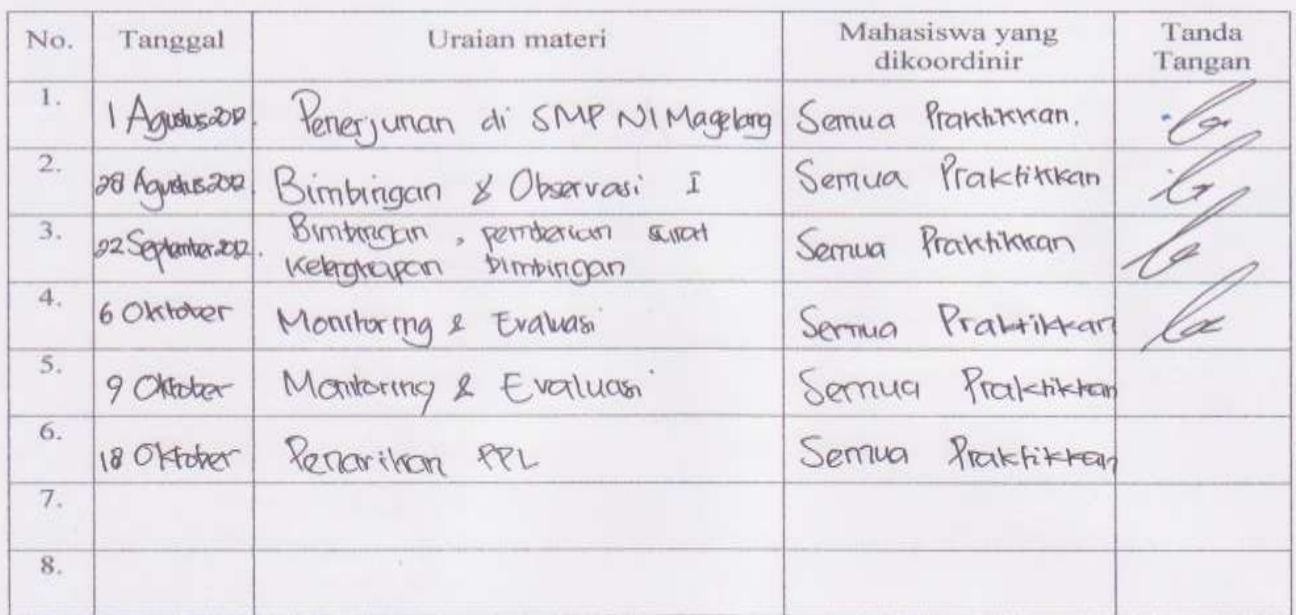 No. Tanggal Uraian materi Mahasiswa yang dikoordinir Tanda Tangan
1. 1 Agustus 2012. Penerjunan di SMP N 1 Magelang Semua Praktikkan.
2. 28 Agustus 2012 Bimbingan & Observasi I Semua Praktikkan
3. 22 September 2012. Bimbingan, pemberian surat Semua Praktikkan
kelengkapan bimbingan
4. 6 Oktober Monitoring & Evaluasi Semua Praktikkan
5. 9 Oktober Monitoring & Evaluasi Semua Praktikkan
6. 18 Oktober Penarikan PPL Semua Praktikkan
7.
8.